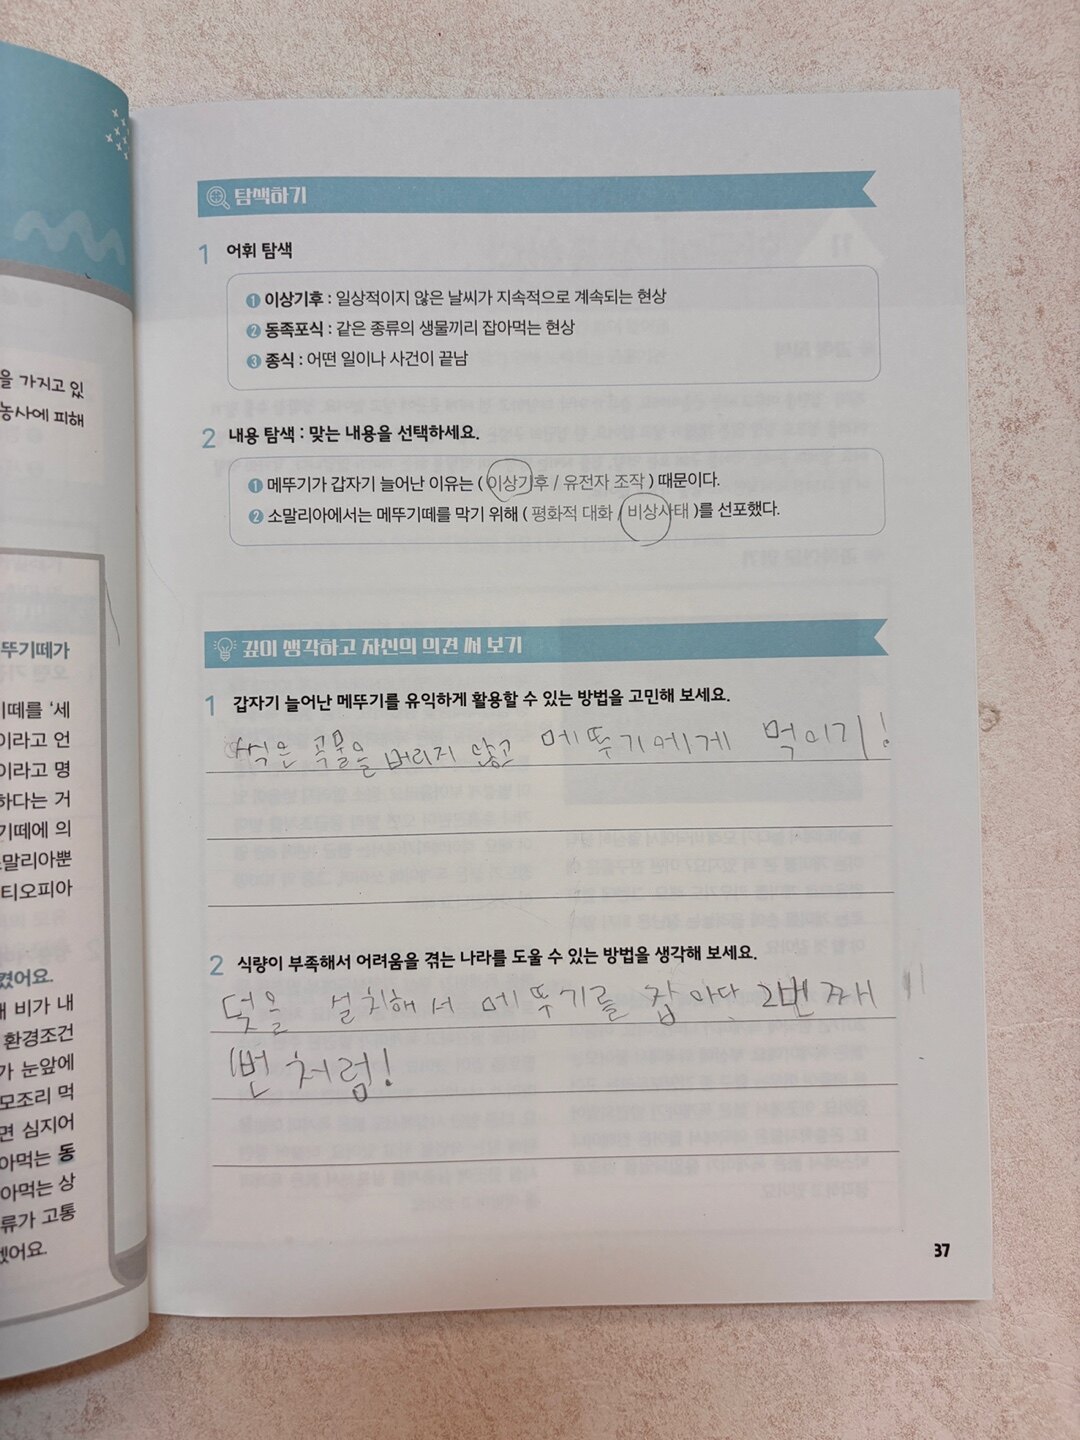 을 가지고 있
농사에 피해
뚜기떼가
기떼를 ‘세
이라고 언
이라고 명
하다는 거
기떼에 의
소말리아뿐
티오피아
켰어요.
해 비가 내
환경조건
가 눈앞에
모조리 먹
면 심지어
아먹는 동
아먹는 상
류가 고통
겠어요.
탐색하기
1 어휘 탐색
❶ 이상기후 : 일상적이지 않은 날씨가 지속적으로 계속되는 현상
❷ 동족포식 : 같은 종류의 생물끼리 잡아먹는 현상
❸ 종식 : 어떤 일이나 사건이 끝남
2 내용 탐색 : 맞는 내용을 선택하세요.
❶ 메뚜기가 갑자기 늘어난 이유는 ( 이상기후 / 유전자 조작 ) 때문이다.
❷ 소말리아에서는 메뚜기떼를 막기 위해 ( 평화적 대화 / 비상사태 )를 선포했다.
깊이 생각하고 자신의 의견 써 보기
1 갑자기 늘어난 메뚜기를 유익하게 활용할 수 있는 방법을 고민해 보세요.
썩은 곡물을 버리지 않고 메뚜기에게 먹이기!
2 식량이 부족해서 어려움을 겪는 나라를 도울 수 있는 방법을 생각해 보세요.
덫을 설치해서 메뚜기를 잡아다 2번째
1번처럼!
37